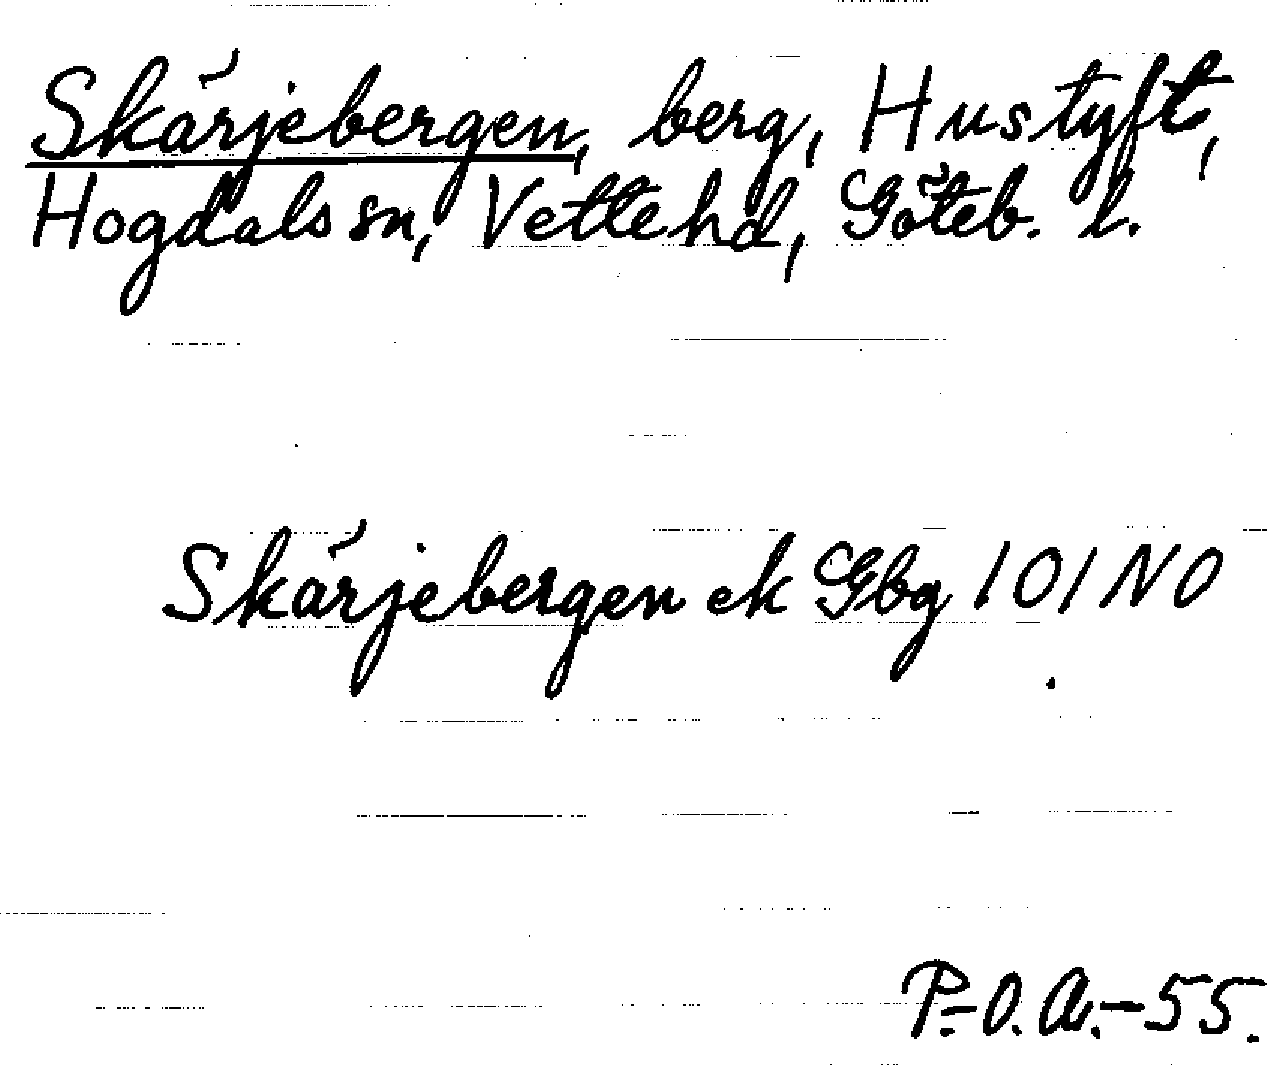 Skärjebergen, berg, Hustyft,
Hogdals sn, Vette hd, Göteb. l.
Skärjebergen ek Gbg 101 NO
P.-O. A. - 55.